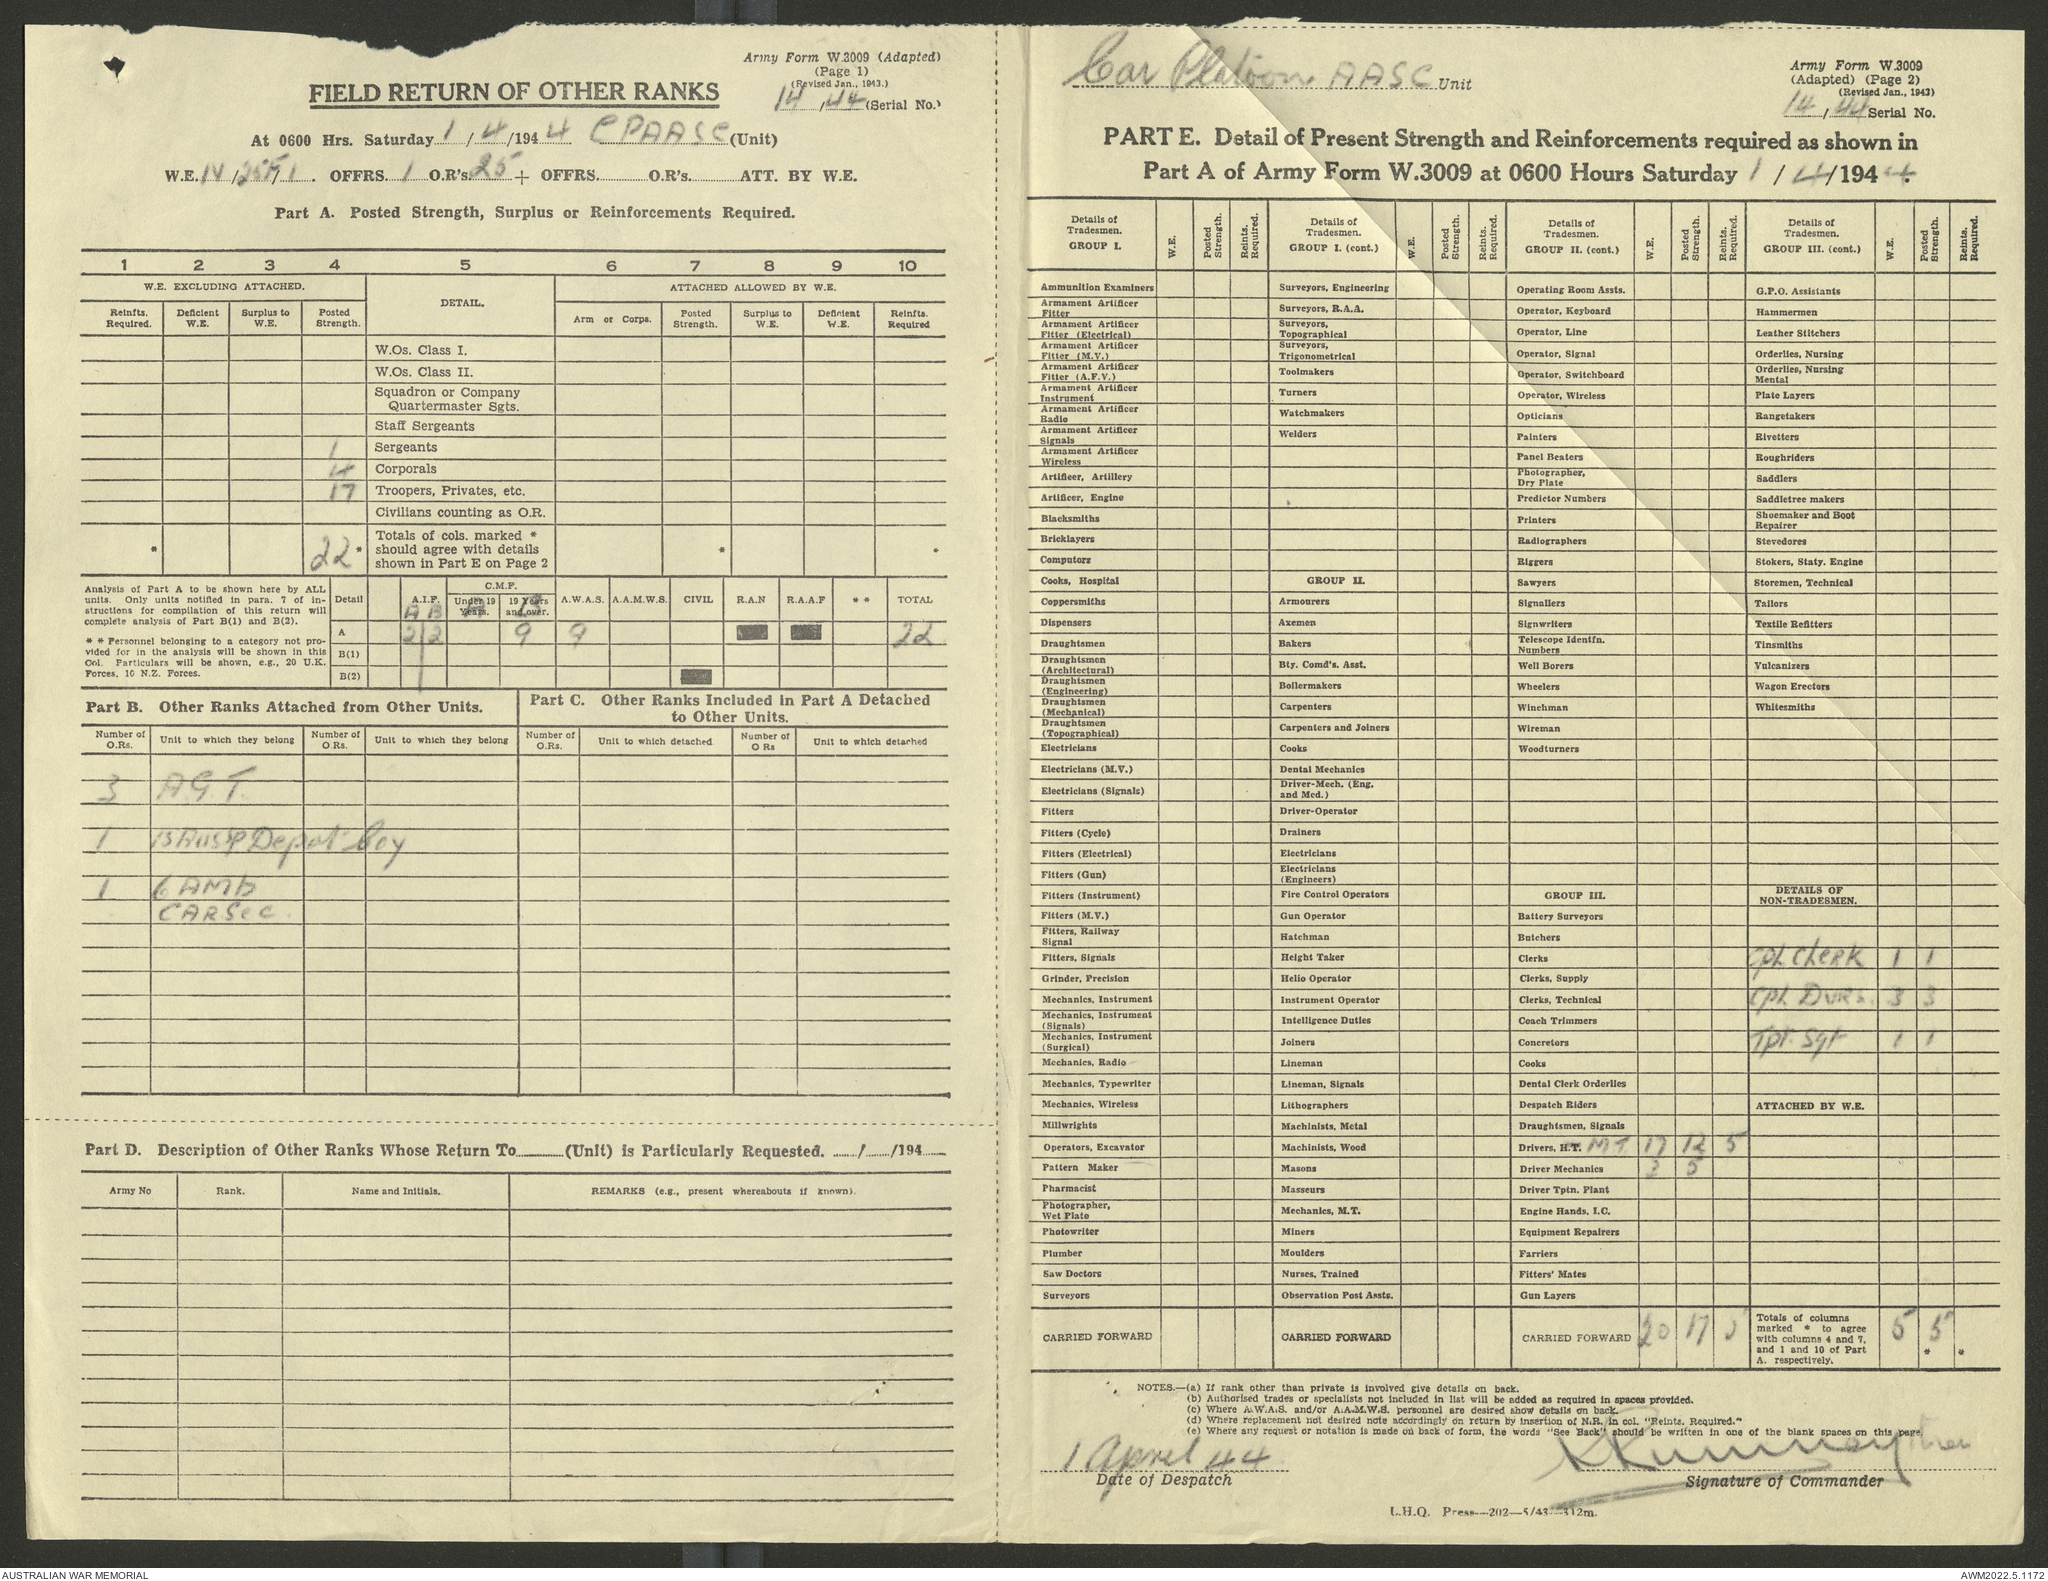 Army Form W.3009 (Adapted)
(Page 1)
(Revised Jan., 1943.)
14/44 (Serial No.)
FIELD RETURN OF OTHER RANKS
At 0600 Hrs. Saturday 1/4/1944 CPAASC (Unit)
W.E. OFFRS. 1 O.R's. 25 + OFFRS. O.R's. ATT. BY W.E.
Part A. Posted Strength, Surplus or Reinforcements Required.
1 2 3 4 5 6 7 8 9 10
W.E. EXCLUDING ATTACHED. DETAIL. ATTACHED ALLOWED BY W.E.
Reinfts. Required. Deficient W.E. Surplus to W.E. Posted Strength. Arm or Corps. Posted Strength. Surplus to W.E. Deficient W.E. Reinfts. Required
W.Os. Class I.
W.Os. Class II.
Squadron or Company
Quartermaster Sgts.
Staff Sergeants
1 Sergeants
4 Corporals
17 Troopers, Privates, etc.
Civilians counting as O.R.
* 22 * Totals of cols. marked * * *
should agree with details
shown in Part E on Page 2
Analysis of Part A to be shown here by ALL
units. Only units notified in para. 7 of in-
structions for compilation of this return will
complete analysis of Part B(1) and B(2).
* * Personnel belonging to a category not pro-
vided for in the analysis will be shown in this
Col. Particulars will be shown, e.g., 20 U.K.
Forces, 10 N.Z. Forces.
Detail A.I.F. C.M.F. Under 19 Years. 19 Years and over. A.W.A.S. A.A.M.W.S. CIVIL R.A.N R.A.A.F * * TOTAL
A B A B
A 2 2 9 9 22
B(1)
B(2)
Part B. Other Ranks Attached from Other Units.
Number of O.Rs. Unit to which they belong Number of O.Rs. Unit to which they belong
3 A.G.T.
1 Depot Coy
1 6 AMb
CAR Sec.
Part C. Other Ranks Included in Part A Detached
to Other Units.
Number of O.Rs. Unit to which detached Number of O Rs Unit to which detached
Part D. Description of Other Ranks Whose Return To (Unit) is Particularly Requested. / /194
Army No Rank. Name and Initials. REMARKS (e.g., present whereabouts if known).
Car Platoon AASC Unit
Army Form W.3009
(Adapted) (Page 2)
(Revised Jan., 1943)
14/44 Serial No.
PART E. Detail of Present Strength and Reinforcements required as shown in
Part A of Army Form W.3009 at 0600 Hours Saturday 1/4/1944.
Details of Tradesmen. GROUP I. W.E. Posted Strength. Reints. Required.
Ammunition Examiners
Armament Artificer Fitter
Armament Artificer Fitter (Electrical)
Armament Artificer Fitter (M.V.)
Armament Artificer Fitter (A.F.V.)
Armament Artificer Instrument
Armament Artificer Radio
Armament Artificer Signals
Armament Artificer Wireless
Artificer, Artillery
Artificer, Engine
Blacksmiths
Bricklayers
Computors
Cooks, Hospital
Coppersmiths
Dispensers
Draughtsmen
Draughtsmen (Architectural)
Draughtsmen (Engineering)
Draughtsmen (Mechanical)
Draughtsmen (Topographical)
Electricians
Electricians (M.V.)
Electricians (Signals)
Fitters
Fitters (Cycle)
Fitters (Electrical)
Fitters (Gun)
Fitters (Instrument)
Fitters (M.V.)
Fitters, Railway Signal
Fitters, Signals
Grinder, Precision
Mechanics, Instrument
Mechanics, Instrument (Signals)
Mechanics, Instrument (Surgical)
Mechanics, Radio
Mechanics, Typewriter
Mechanics, Wireless
Millwrights
Operators, Excavator
Pattern Maker
Pharmacist
Photographer, Wet Plate
Photowriter
Plumber
Saw Doctors
Surveyors
CARRIED FORWARD
Details of Tradesmen. GROUP I. (cont.) W.E. Posted Strength. Reints. Required.
Surveyors, Engineering
Surveyors, R.A.A.
Surveyors, Topographical
Surveyors, Trigonometrical
Toolmakers
Turners
Watchmakers
Welders
GROUP II.
Armourers
Axemen
Bakers
Bty. Comd's. Asst.
Boilermakers
Carpenters
Carpenters and Joiners
Cooks
Dental Mechanics
Driver-Mech. (Eng. and Med.)
Driver-Operator
Drainers
Electricians
Electricians (Engineers)
Fire Control Operators
Gun Operator
Hatchman
Height Taker
Helio Operator
Instrument Operator
Intelligence Duties
Joiners
Lineman
Lineman, Signals
Lithographers
Machinists, Metal
Machinists, Wood
Masons
Masseurs
Mechanics, M.T.
Miners
Moulders
Nurses, Trained
Observation Post Assts.
CARRIED FORWARD
Details of Tradesmen. GROUP II. (cont.) W.E. Posted Strength. Reints. Required.
Operating Room Assts.
Operator, Keyboard
Operator, Line
Operator, Signal
Operator, Switchboard
Operator, Wireless
Opticians
Painters
Panel Beaters
Photographer, Dry Plate
Predictor Numbers
Printers
Radiographers
Riggers
Sawyers
Signallers
Signwriters
Telescope Identfn. Numbers
Well Borers
Wheelers
Winchman
Wireman
Woodturners
GROUP III.
Battery Surveyors
Butchers
Clerks
Clerks, Supply
Clerks, Technical
Coach Trimmers
Concretors
Cooks
Dental Clerk Orderlies
Despatch Riders
Draughtsmen, Signals
Drivers, H.T. - M.T. 17 12 5
Driver Mechanics 3 5
Driver Tptn. Plant
Engine Hands, I.C.
Equipment Repairers
Farriers
Fitters' Mates
Gun Layers
CARRIED FORWARD 20 17 5
Details of Tradesmen. GROUP III. (cont.) W.E. Posted Strength. Reints. Required.
G.P.O. Assistants
Hammermen
Leather Stitchers
Orderlies, Nursing
Orderlies, Nursing Mental
Plate Layers
Rangetakers
Rivetters
Roughriders
Saddlers
Saddletree makers
Shoemaker and Boot Repairer
Stevedores
Stokers, Staty. Engine
Storemen, Technical
Tailors
Textile Refitters
Tinsmiths
Vulcanizers
Wagon Erectors
Whitesmiths
DETAILS OF
NON-TRADESMEN.
Cpl. Clerk 1 1
Cpl Dvrs. 3 3
Tpt. Sgt 1 1
ATTACHED BY W.E.
Totals of columns marked * to agree with columns 4 and 7, and 1 and 10 of Part A. respectively. 5 5 * *
NOTES.—(a) If rank other than private is involved give details on back.
(b) Authorised trades or specialists not included in list will be added as required in spaces provided.
(c) Where A.W.A.S. and/or A.A.M.W.S. personnel are desired show details on back.
(d) Where replacement not desired note accordingly on return by insertion of N.R. in col. "Reints. Required."
(e) Where any request or notation is made on back of form, the words "See Back" should be written in one of the blank spaces on this page.
1 April 44
Date of Despatch
Signature of Commander
L.H.Q. Press—202—5/43—312m.
AUSTRALIAN WAR MEMORIAL
AWM2022.5.1172